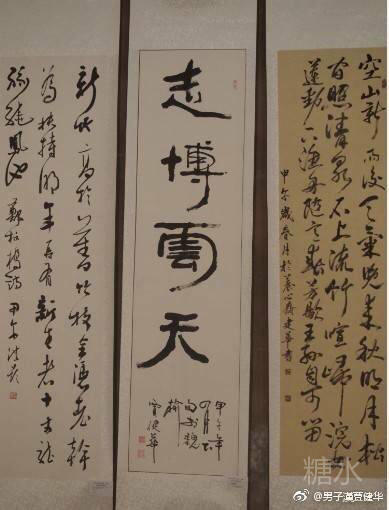 空山新雨後天氣晚来秋明月松
间照清泉石上流竹喧歸浣女
蓮動下漁舟随意春芳歇王孫自可留
甲午歲春月於養心齋建華書
志博雲天
甲午年
四月书
賈建華
新竹高於舊竹枝全憑老幹
為扶持明年再有新生者十丈龍
孫繞鳳池 鄭板橋詩 甲午
糖水
@男子漢賈健华